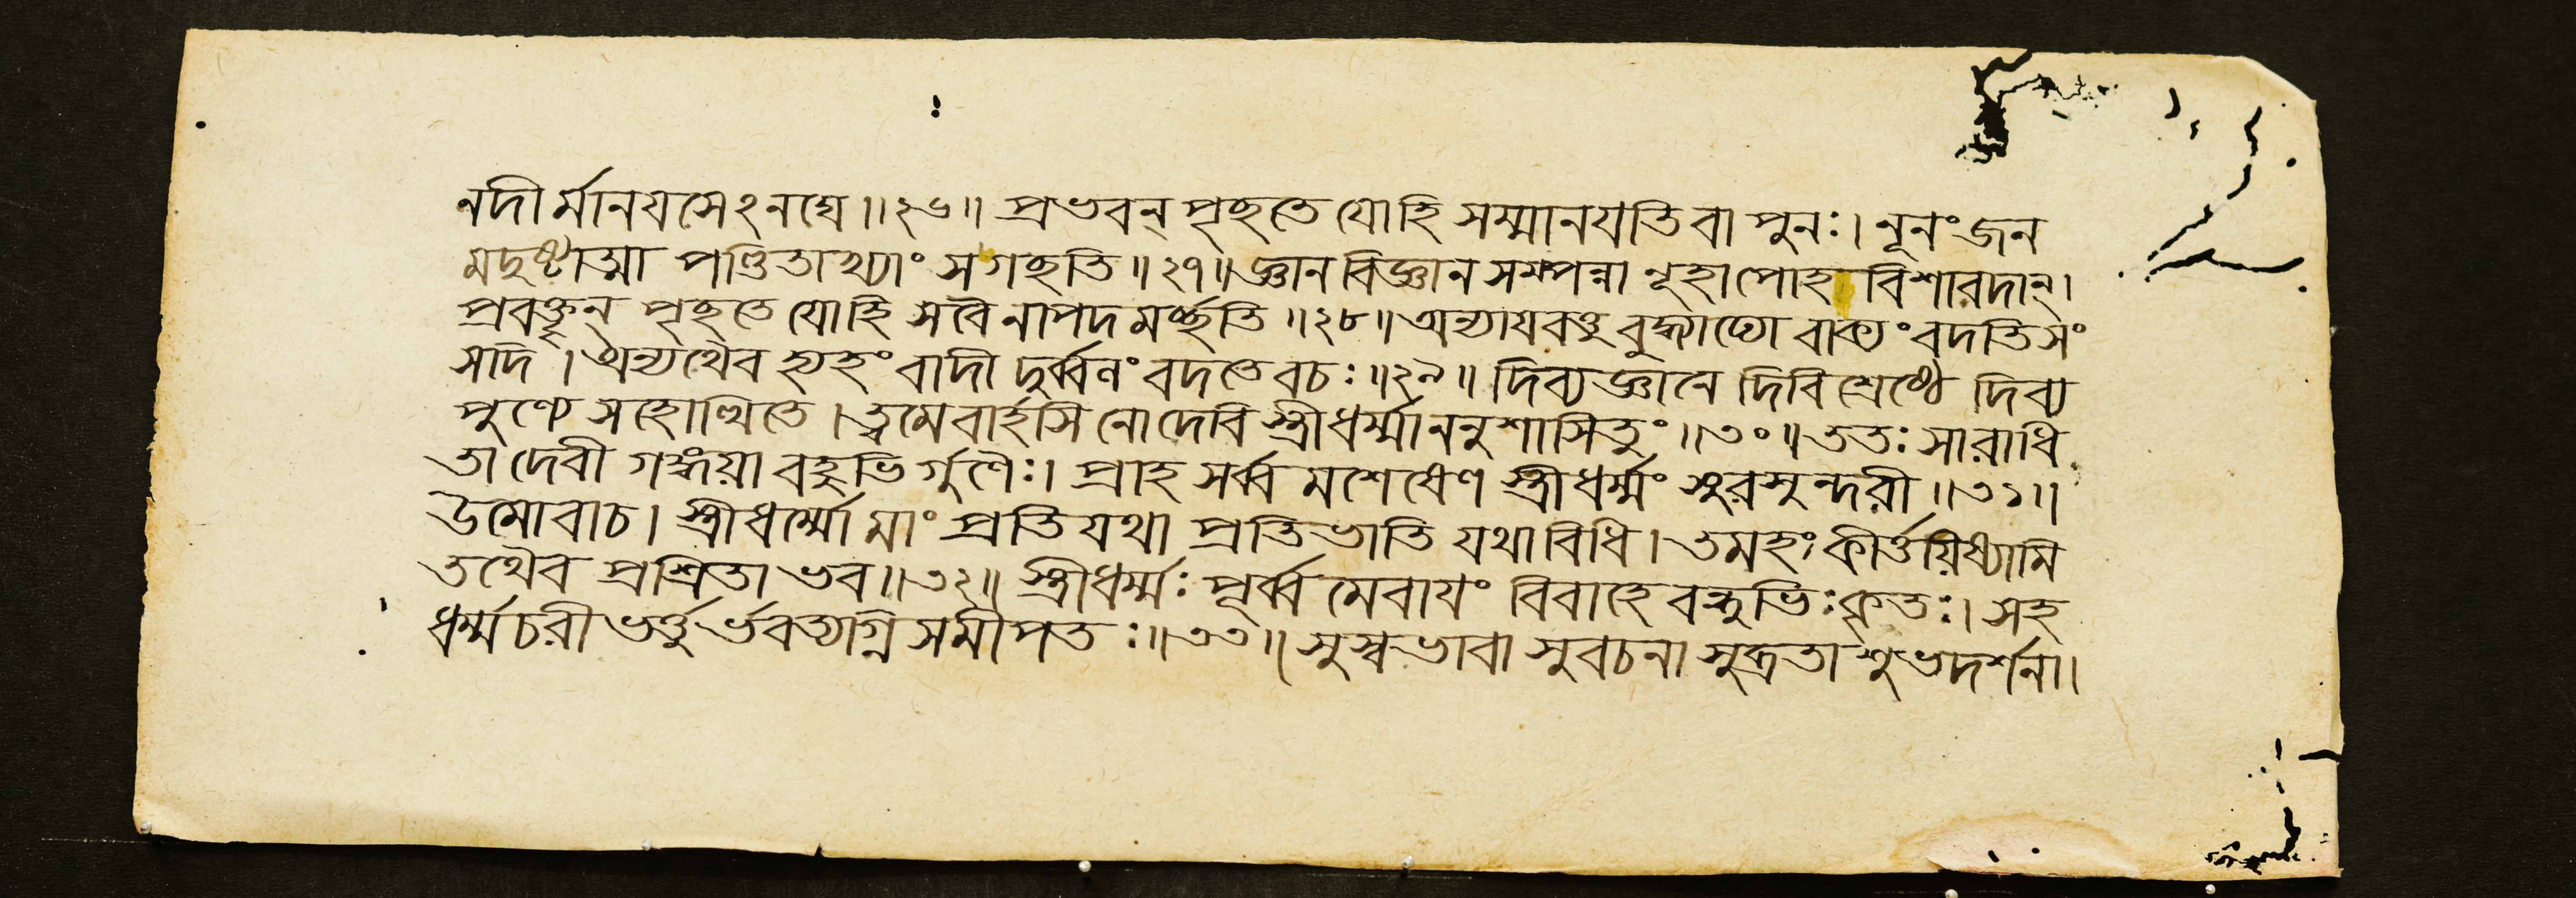 নদীর্মানযসেঽনঘে॥২৬॥ প্রভবন্ পৃছতে যোহি সম্মানযতি বা পুনঃ। নূনং জন
মদুষ্টাত্মা পণ্ডিতাখ্যাং সগছতি॥২৭॥ জ্ঞানবিজ্ঞানসম্পন্না নূহাপোহাবিশারদান্।
প্রবক্তৃন্ পৃছতে যোহি সবৈনাপদমর্চ্ছতি॥২৮॥ অন্যাযবত্তু বুদ্ধ্যাঢ্যো বাক্যং বদতি সং
সাদি। অন্যথৈব হ্যহং বাদী দুর্ব্বণং বদতে বচঃ॥২৯॥ দিব্যজ্ঞানে দিবিশ্রেষ্ঠে দিব্য
পুণ্যে সহোত্থিতে। ত্বমেবার্হসি নোদেবি স্ত্রীধর্ম্মাননুশাসিতুং॥৩০॥ ততঃ সারাধি
তা দেবী গঙ্গয়া বহুভির্গুণৈঃ। প্রাহ সর্ব্বমশেষেণ স্ত্রীধর্ম্মং সুরসুন্দরী॥৩১॥
উমোবাচ। স্ত্রীধর্ম্মো মাং প্রতি যথা প্রতিভাতি যথাবিধি। তমহং কীর্ত্তয়িষ্যামি
তথৈব প্রশ্রিতা ভব॥৩২॥ স্ত্রীধর্ম্মঃ পূর্ব্বমেবাযং বিবাহে বন্ধুভিঃ কৃতঃ। সহ
ধর্ম্মচরী ভর্ত্তুর্ভবত্যাগ্নিসমীপতঃ॥৩৩॥ সুস্বভাবা সুবচনা সুব্রতা শুভদর্শনা।